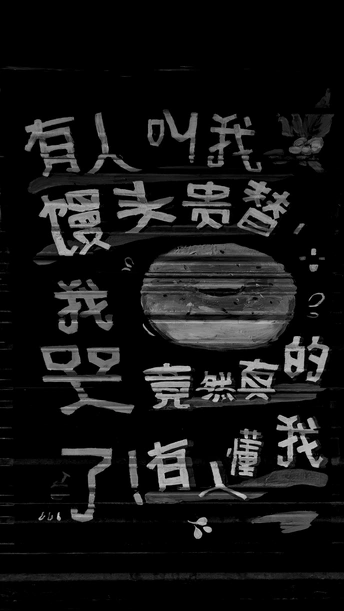 有人叫我
馒头贵替,
我
哭
了!
竟然真的
有人懂我